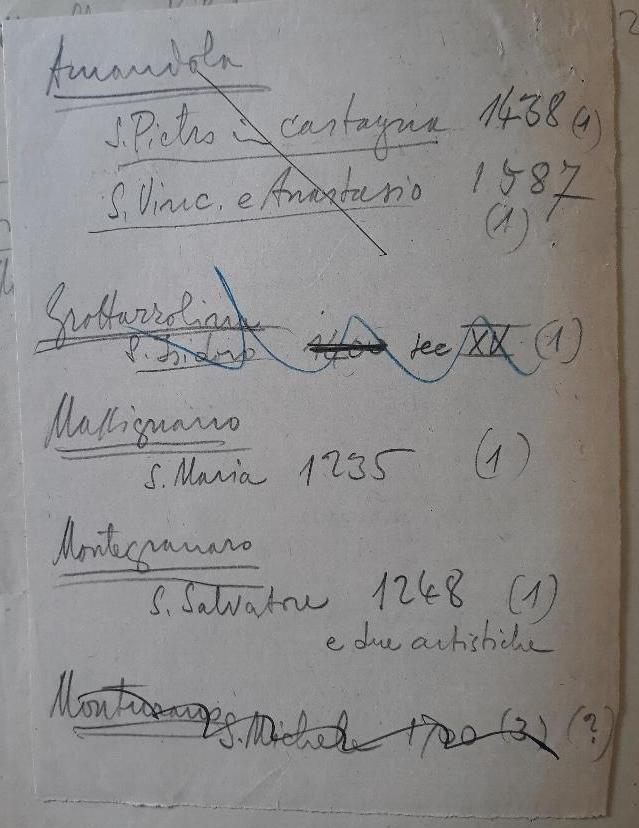 Amandola
S. Pietro in castagna 1438 (1)
S. Vinc. e Anastasio 1587
(1)
Grottazzolina
S. Isidoro 1400 sec XV (1)
Massignano
S. Maria 1235 (1)
Montegranaro
S. Salvatore 1248 (1)
e due artistiche
S. Michele 1700 (3) (?)